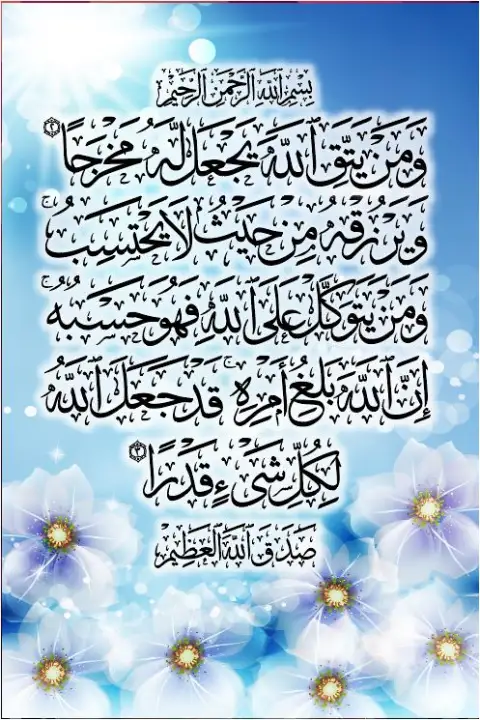 بِسْمِ ٱللَّهِ ٱلرَّحْمَٰنِ ٱلرَّحِيمِ
وَمَن يَتَّقِ ٱللَّهَ يَجْعَل لَّهُۥ مَخْرَجًا ٢
وَيَرْزُقْهُ مِنْ حَيْثُ لَا يَحْتَسِبُ ۚ
وَمَن يَتَوَكَّلْ عَلَى ٱللَّهِ فَهُوَ حَسْبُهُۥٓ ۚ
إِنَّ ٱللَّهَ بَٰلِغُ أَمْرِهِۦ ۚ قَدْ جَعَلَ ٱللَّهُ
لِكُلِّ شَىْءٍ قَدْرًا ٣
صَدَقَ ٱللَّهُ ٱلْعَظِيمُ